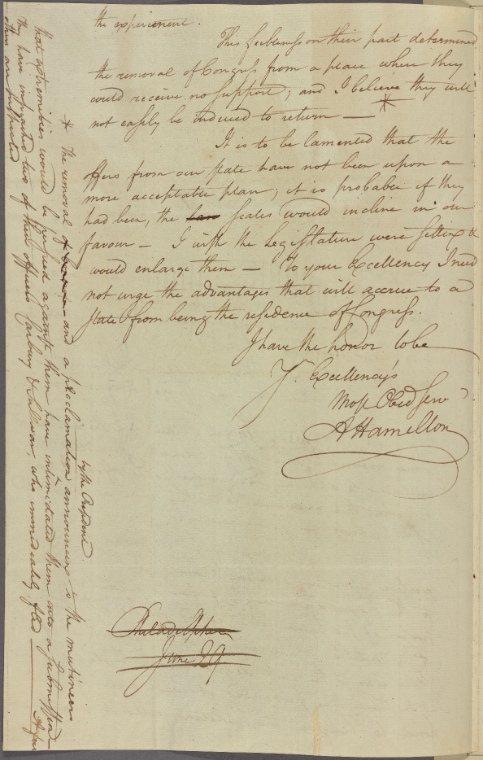 the experiment.
This feebleness on their part determined
the removal of Congress from a place where they
could receive no support; and I believe they will
not easily be induced to return — *
It is to be lamented that the
offers from our state have not been upon a
more acceptable plan; it is probable if they
had been, the scales would incline in our
favour — I wish the Legislature were sitting &
would enlarge them — To your Excellency I need
not urge the advantages that will accrue to a
state from being the residence of Congress.
I have the honor to be
Y. Excellency's
Most Obed Serv
A Hamilton
Philadelphia
June 29
* The removal of and a proclamation announcing to the mutineers
by the President
that extremities would be used against them have intimidated them into a submission —
They have impeached two of their officers Carbery & Sullivan, who immediately fled
others are suspected